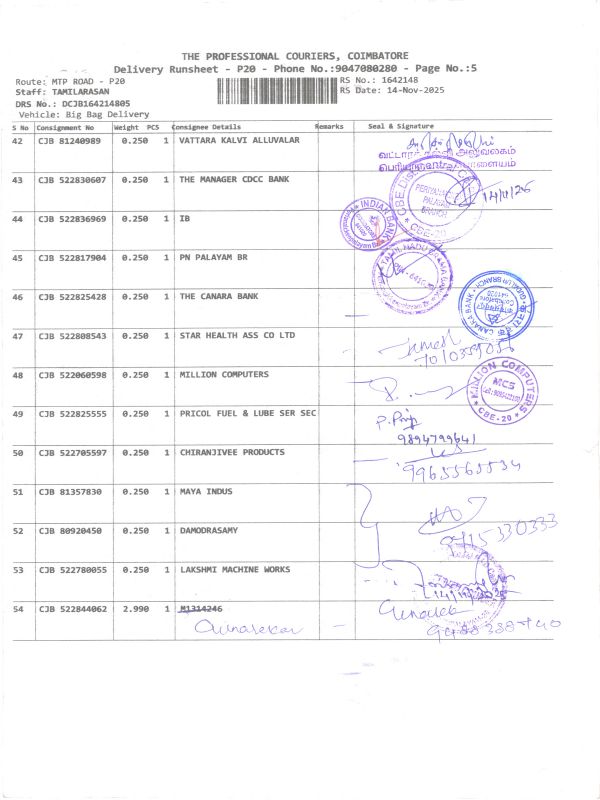 THE PROFESSIONAL COURIERS, COIMBATORE
Delivery Runsheet - P20 - Phone No.:9047080280 - Page No.:5
Route: MTP ROAD - P20 RS No.: 1642148
Staff: TAMILARASAN RS Date: 14-Nov-2025
DRS No.: DCJB164214805
Vehicle: Big Bag Delivery
S No Consignment No Weight PCS Consignee Details Remarks Seal & Signature
42 CJB 81240989 0.250 1 VATTARA KALVI ALLUVALAR
வட்டாரக் கல்வி அலுவலகம்
43 CJB 522830607 0.250 1 THE MANAGER CDCC BANK 14/11/25
PERIYANAICKEN PALAYAM BRANCH
CBE-20
44 CJB 522836969 0.250 1 IB
INDIAN BANK
45 CJB 522817904 0.250 1 PN PALAYAM BR
TAMIL NADU GRAMA BANK
46 CJB 522825428 0.250 1 THE CANARA BANK
CANARA BANK
47 CJB 522808543 0.250 1 STAR HEALTH ASS CO LTD
48 CJB 522060598 0.250 1 MILLION COMPUTERS
MILLION COMPUTERS
MCS
CBE-20
49 CJB 522825555 0.250 1 PRICOL FUEL & LUBE SER SEC
9894799641
50 CJB 522705597 0.250 1 CHIRANJIVEE PRODUCTS
9965565534
51 CJB 81357830 0.250 1 MAYA INDUS
52 CJB 80920450 0.250 1 DAMODRASAMY
53 CJB 522780055 0.250 1 LAKSHMI MACHINE WORKS
54 CJB 522844062 2.990 1 M1314246